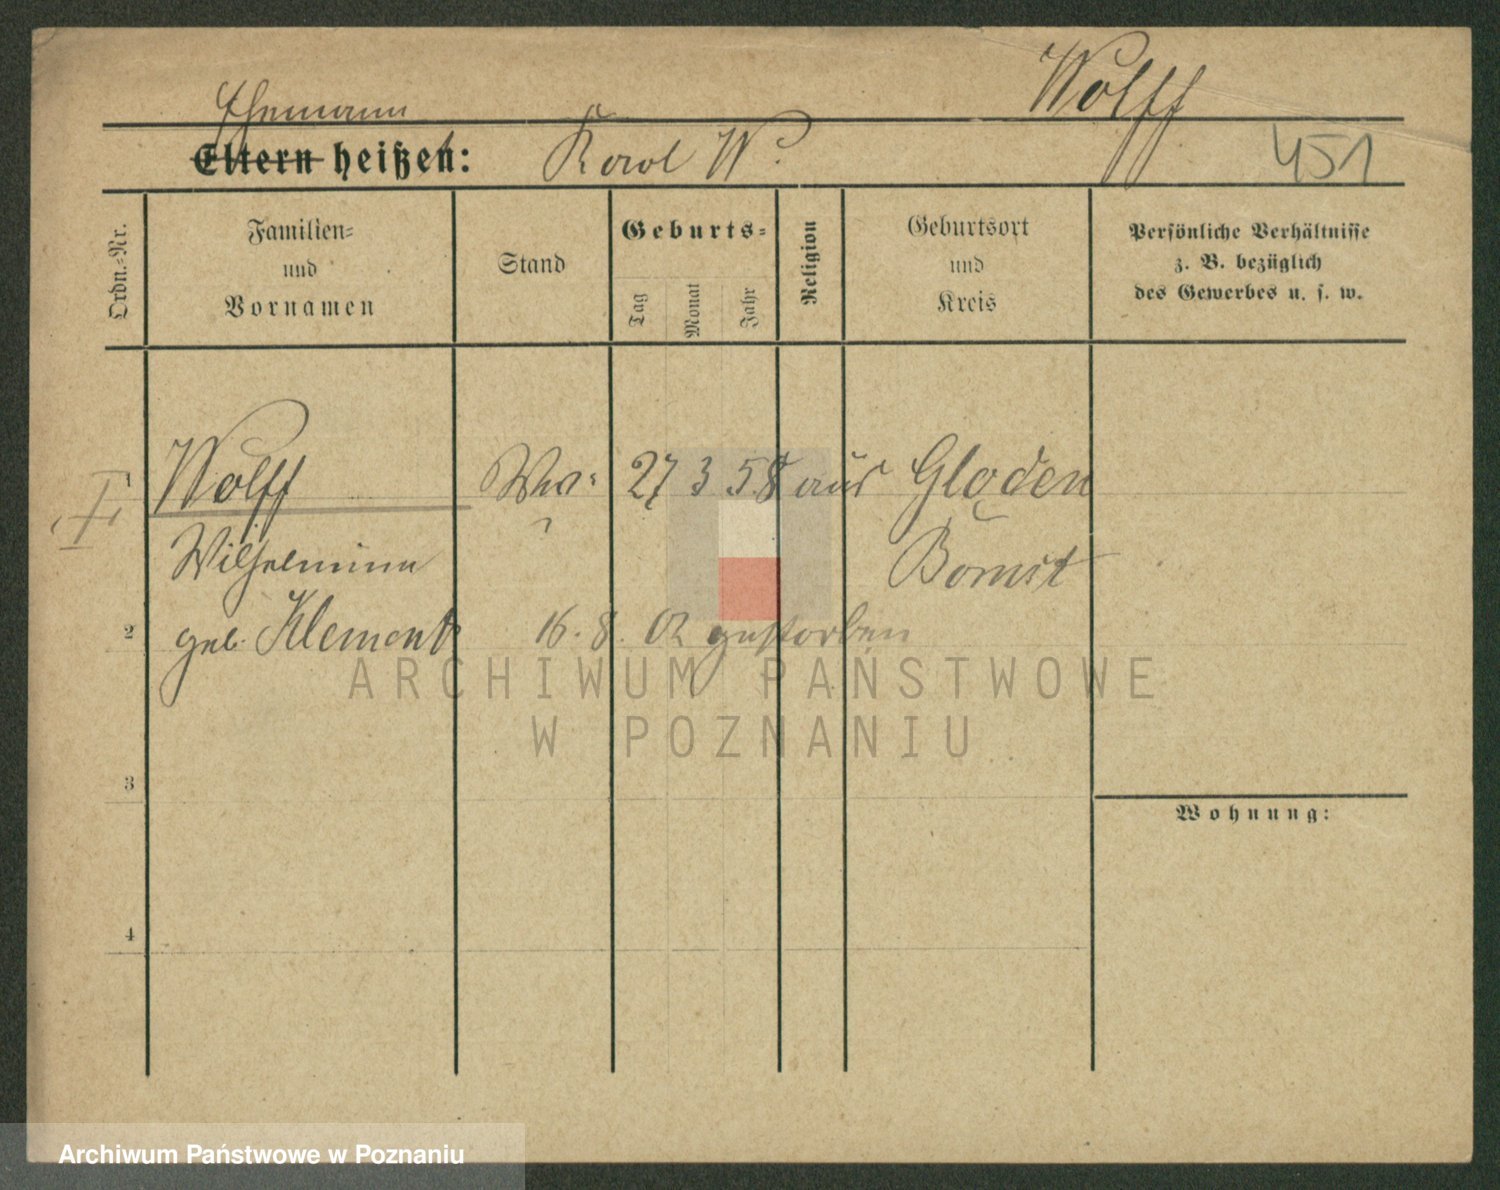 Wolff
Ehemann
Eltern heißen: Karol W.
451
Ordn.-Nr.
Familien-
und
Vornamen
Stand
Geburts-
Tag
Monat
Jahr
Religion
Geburtsort
und
Kreis
Persönliche Verhältnisse
z. B. bezüglich
des Gewerbes u. s. w.
1
Wolff
27 3 58
Gloden
Wilhelmine
Bomst
2
geb. Klemont
16. 8. 02 gestorben
ARCHIWUM PAŃSTWOWE
W POZNANIU
3
Wohnung:
4
Archiwum Państwowe w Poznaniu